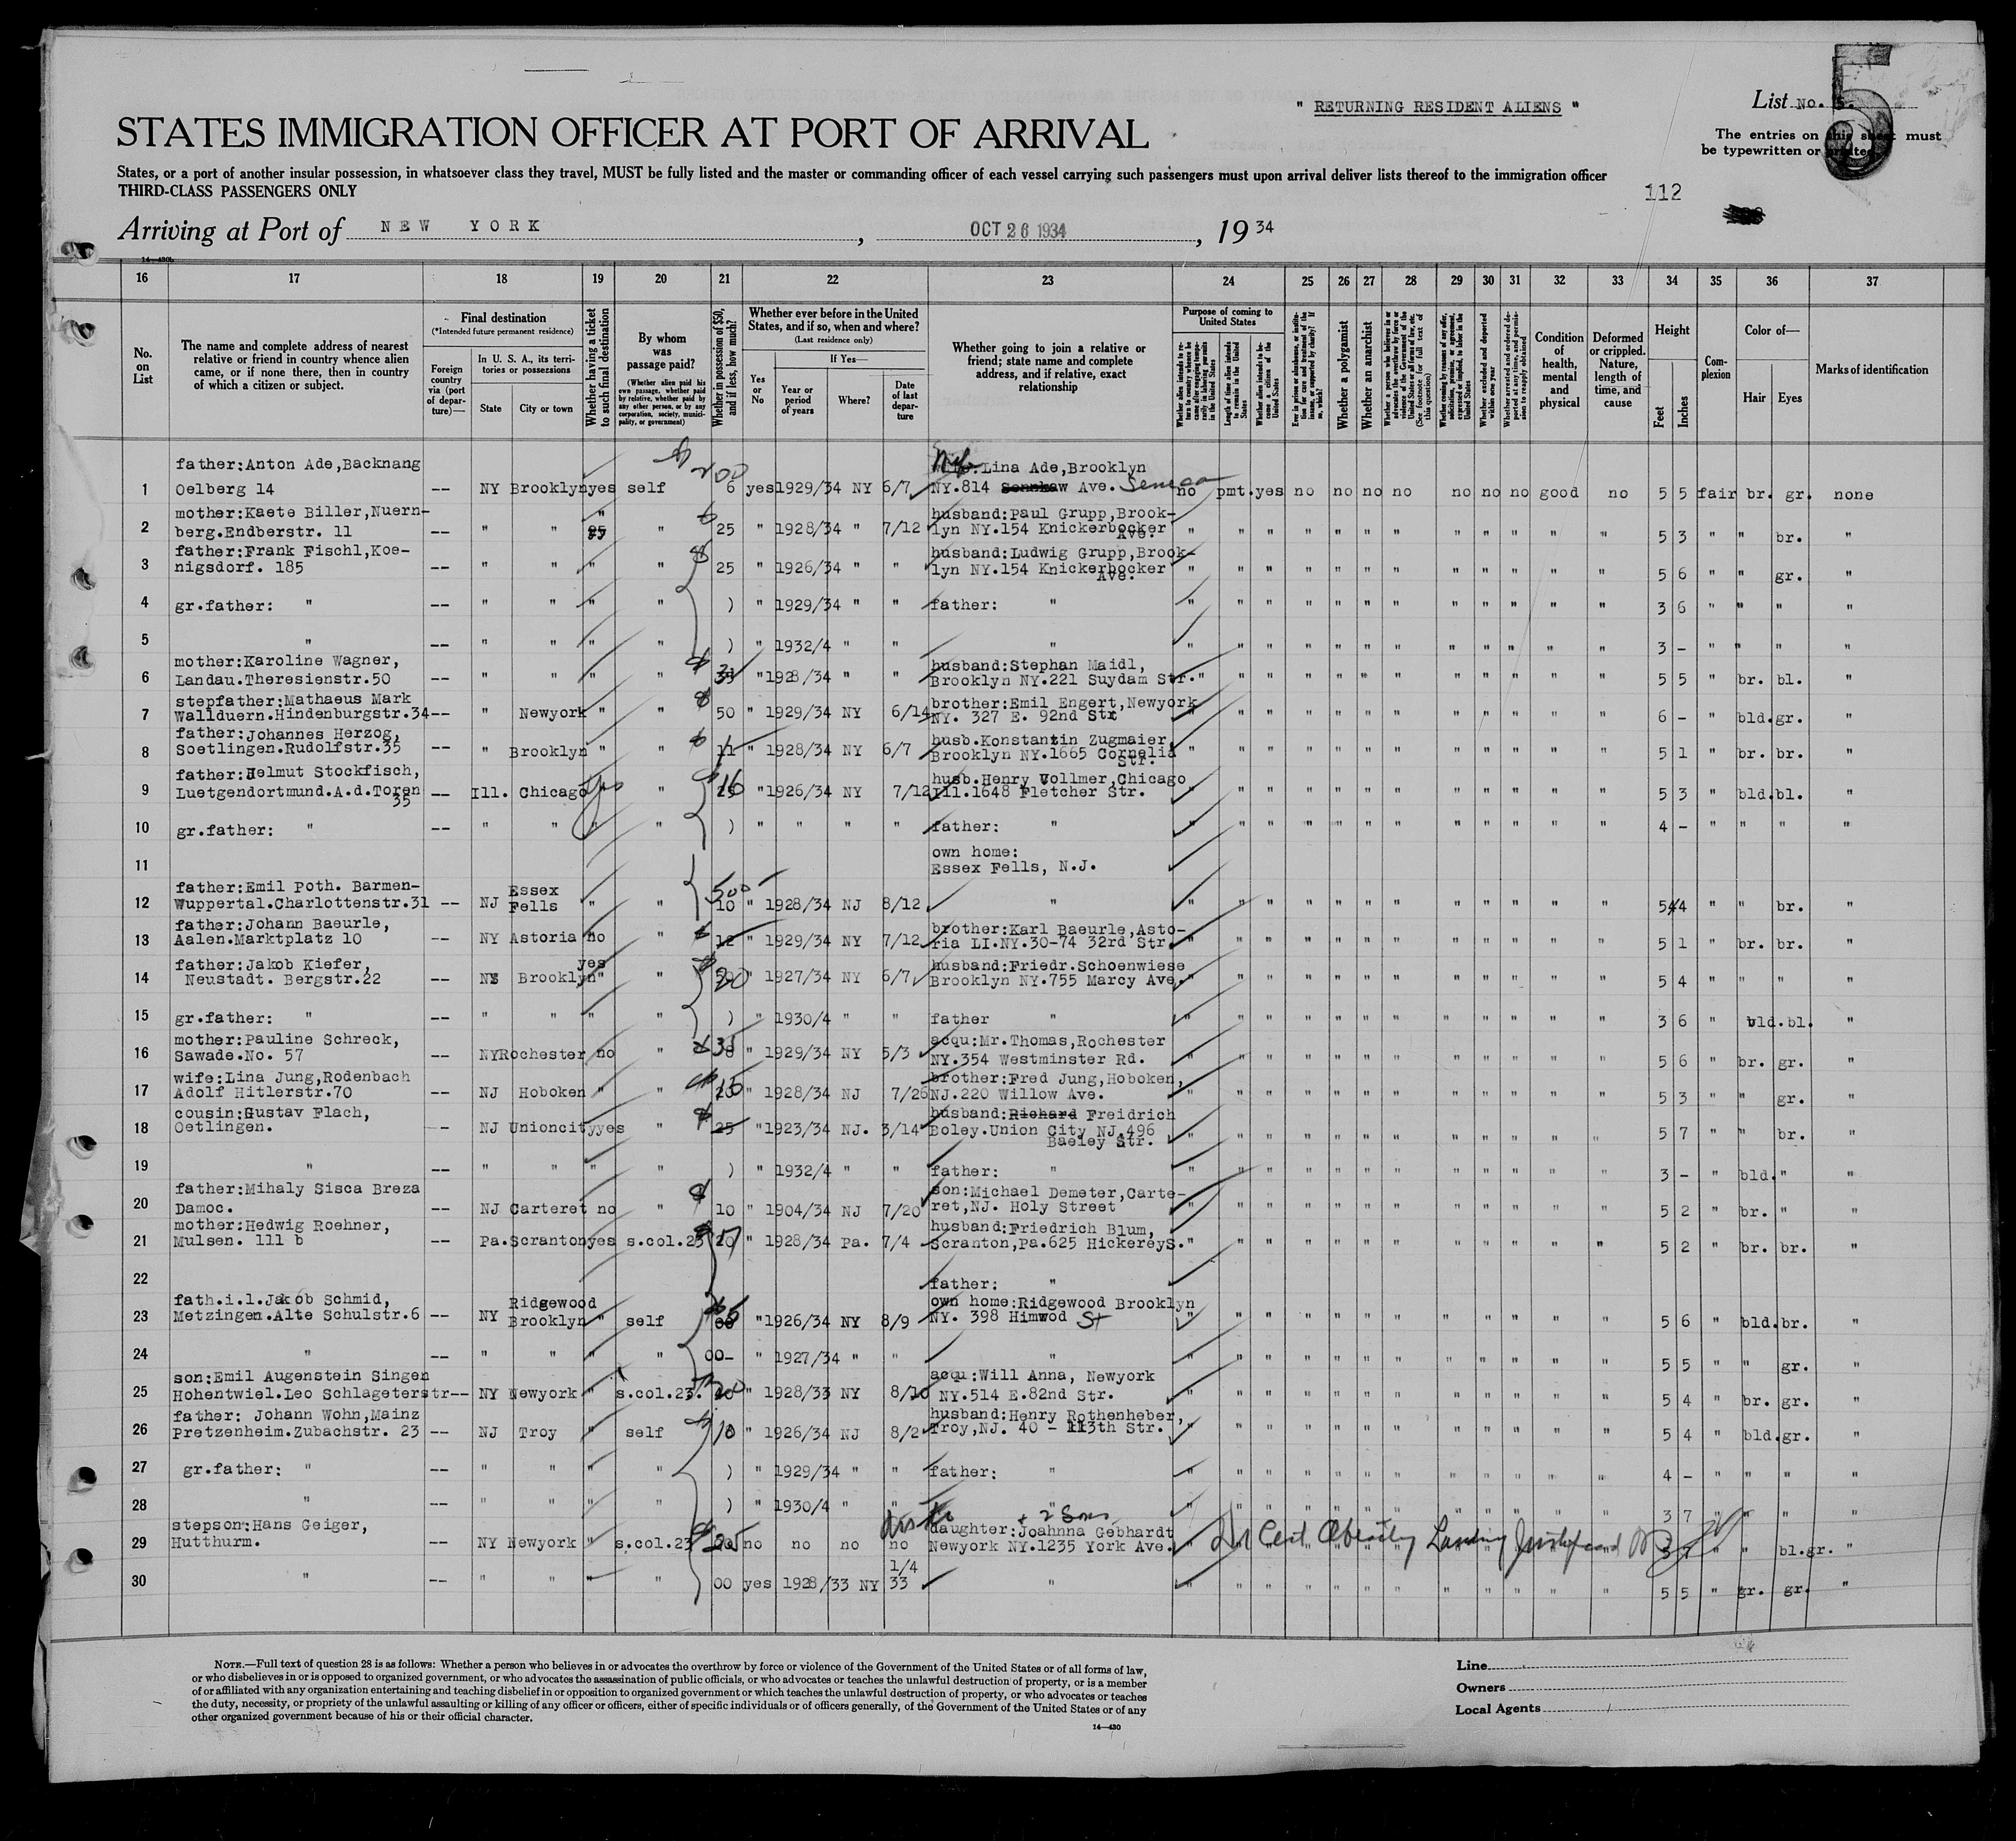 " RETURNING RESIDENT ALIENS "
List No. 5.
5
STATES IMMIGRATION OFFICER AT PORT OF ARRIVAL
The entries on this sheet must
be typewritten or printed
States, or a port of another insular possession, in whatsoever class they travel, MUST be fully listed and the master or commanding officer of each vessel carrying such passengers must upon arrival deliver lists thereof to the immigration officer
THIRD-CLASS PASSENGERS ONLY
112
Arriving at Port of NEW YORK, OCT 26 1934, 1934
14—430b
16 17 18 19 20 21 22 23 24 25 26 27 28 29 30 31 32 33 34 35 36 37
No. on List
The name and complete address of nearest relative or friend in country whence alien came, or if none there, then in country of which a citizen or subject.
Final destination
(*Intended future permanent residence)
Foreign country via (port of departure)—
In U. S. A., its territories or possessions
State
City or town
Whether having a ticket to such final destination
By whom was passage paid?
(Whether alien paid his own passage, whether paid by relative, whether paid by any other person, or by any corporation, society, municipality, or government)
Whether in possession of $50, and if less, how much?
Whether ever before in the United States, and if so, when and where?
(Last residence only)
Yes or No
If Yes—
Year or period of years
Where?
Date of last departure
Whether going to join a relative or friend; state name and complete address, and if relative, exact relationship
Purpose of coming to United States
Whether a polygamist
Whether an anarchist
Condition of health, mental and physical
Deformed or crippled. Nature, length of time, and cause
Height
Feet
Inches
Complexion
Color of—
Hair
Eyes
Marks of identification
father:Anton Ade,Backnang
Lina Ade,Brooklyn
1 Oelberg 14 -- NY Brooklyn yes self 6 yes 1929/34 NY 6/7 NY.814 Ave. Seneca no pmt. yes no no no no no no no good no 5 5 fair br. gr. none
mother:Kaete Biller,Nuern- husband:Paul Grupp,Brook-
2 berg.Endberstr. 11 -- " " " " 25 " 1928/34 " 7/12 lyn NY.154 Knickerbocker Ave. " " " " " " " " " " " " 5 3 " " br. "
father:Frank Fischl,Koe- husband:Ludwig Grupp,Brook-
3 nigsdorf. 185 -- " " " " 25 " 1926/34 " " lyn NY.154 Knickerbocker Ave. " " " " " " " " " " " " 5 6 " " gr. "
4 gr.father: " -- " " " " ) " 1929/34 " " father: " " " " " " " " " " " " " 3 6 " " " "
5 " -- " " " " ) " 1932/4 " " " " " " " " " " " " " " " 3 - " " " "
mother:Karoline Wagner, husband:Stephan Maidl,
6 Landau.Theresienstr.50 -- " " " " " 1928/34 " " Brooklyn NY.221 Suydam Str. " " " " " " " " " " " " 5 5 " br. bl. "
stepfather:Mathaeus Mark brother:Emil Engert,Newyork
7 Wallduern.Hindenburgstr.34 -- " Newyork " " 50 " 1929/34 NY 6/14 NY. 327 E. 92nd Str " " " " " " " " " " " " 6 - " bld. gr. "
father:Johannes Herzog, husb.Konstantin Zugmaier,
8 Soetlingen.Rudolfstr.35 -- " Brooklyn " " 11 " 1928/34 NY 6/7 Brooklyn NY.1665 Cornelia Str. " " " " " " " " " " " " 5 1 " br. br. "
father:Helmut Stockfisch, husb.Henry Vollmer,Chicago
9 Luetgendortmund.A.d.Toren 35 -- Ill. Chicago yes " 16 " 1926/34 NY 7/12 Ill.1648 Fletcher Str. " " " " " " " " " " " " 5 3 " bld. bl. "
10 gr.father: " -- " " " " ) " " " " father: " " " " " " " " " " " " " 4 - " " " "
11 own home:
Essex Fells, N.J.
father:Emil Poth. Barmen- Essex 500
12 Wuppertal.Charlottenstr.31 -- NJ Fells " " 10 " 1928/34 NJ 8/12 " " " " " " " " " " " " " 5 4 " " br. "
father:Johann Baeurle, brother:Karl Baeurle,Asto-
13 Aalen.Marktplatz 10 -- NY Astoria no " 12 " 1929/34 NY 7/12 ria LI.NY.30-74 32rd Str. " " " " " " " " " " " " 5 1 " br. br. "
father:Jakob Kiefer, yes husband:Friedr.Schoenwiese
14 Neustadt. Bergstr.22 -- NY Brooklyn " " 20 " 1927/34 NY 6/7 Brooklyn NY.755 Marcy Ave. " " " " " " " " " " " " 5 4 " " " "
15 gr.father: " -- " " " " ) " 1930/4 " " father " " " " " " " " " " " " " 3 6 " bld. bl. "
mother:Pauline Schreck, acqu:Mr.Thomas,Rochester
16 Sawade.No. 57 -- NY Rochester no " 35 " 1929/34 NY 5/3 NY.354 Westminster Rd. " " " " " " " " " " " " 5 6 " br. gr. "
wife:Lina Jung,Rodenbach brother:Fred Jung,Hoboken,
17 Adolf Hitlerstr.70 -- NJ Hoboken " " 15 " 1928/34 NJ 7/26 NJ.220 Willow Ave. " " " " " " " " " " " " 5 3 " " gr. "
cousin:Gustav Flach, husband:Richard Freidrich
18 Oetlingen. -- NJ Unioncity yes " 25 " 1923/34 NJ. 3/14 Boley.Union City NJ.496 Baeley Str. " " " " " " " " " " " " 5 7 " " br. "
19 " -- " " " " ) " 1932/4 " " father: " " " " " " " " " " " " " 3 - " bld. " "
father:Mihaly Sisca Breza son:Michael Demeter,Carte-
20 Damoc. -- NJ Carteret no " 10 " 1904/34 NJ 7/20 ret,NJ. Holy Street " " " " " " " " " " " " 5 2 " br. " "
mother:Hedwig Roehner, husband:Friedrich Blum,
21 Mulsen. 111 b -- Pa. Scranton yes s.col.23 " 1928/34 Pa. 7/4 Scranton,Pa.625 HickereyS. " " " " " " " " " " " " 5 2 " br. br. "
22 father: "
fath.i.l.Jakob Schmid, Ridgewood own home:Ridgewood Brooklyn
23 Metzingen.Alte Schulstr.6 -- NY Brooklyn " self " 1926/34 NY 8/9 NY. 398 Himwod St " " " " " " " " " " " " 5 6 " bld. br. "
24 " -- " " " " 00- " 1927/34 " " " " " " " " " " " " " " " 5 5 " " gr. "
son:Emil Augenstein Singen acqu:Will Anna, Newyork
25 Hohentwiel.Leo Schlageterstr -- NY Newyork " s.col.23. " 1928/33 NY 8/10 NY.514 E.82nd Str. " " " " " " " " " " " " 5 4 " br. gr. "
father: Johann Wohn,Mainz husband:Henry Rothenheber,
26 Pretzenheim.Zubachstr. 23 -- NJ Troy " self 10 " 1926/34 NJ 8/2 Troy,NJ. 40 - 113th Str. " " " " " " " " " " " " 5 4 " bld. gr. "
27 gr.father: " -- " " " " ) " 1929/34 " " father: " " " " " " " " " " " " " 4 - " " " "
28 " -- " " " " ) " 1930/4 " " " " " " " " " " " " " " " 3 7 " " " "
+ 2 Sons
stepson:Hans Geiger, daughter:Joahnna Gebhardt
29 Hutthurm. -- NY Newyork " s.col.23 no no no no Newyork NY.1235 York Ave. " Cert Landing " " bl. gr. "
1/4
30 " -- " " " " 00 yes 1928/33 NY 33 " " " " " " " " " " " " " 5 5 " gr. gr. "
NOTE.—Full text of question 28 is as follows: Whether a person who believes in or advocates the overthrow by force or violence of the Government of the United States or of all forms of law,
or who disbelieves in or is opposed to organized government, or who advocates the assassination of public officials, or who advocates or teaches the unlawful destruction of property, or is a member
of or affiliated with any organization entertaining and teaching disbelief in or opposition to organized government or which teaches the unlawful destruction of property, or who advocates or teaches
the duty, necessity, or propriety of the unlawful assaulting or killing of any officer or officers, either of specific individuals or of officers generally, of the Government of the United States or of any
other organized government because of his or their official character.
14—430
Line
Owners
Local Agents